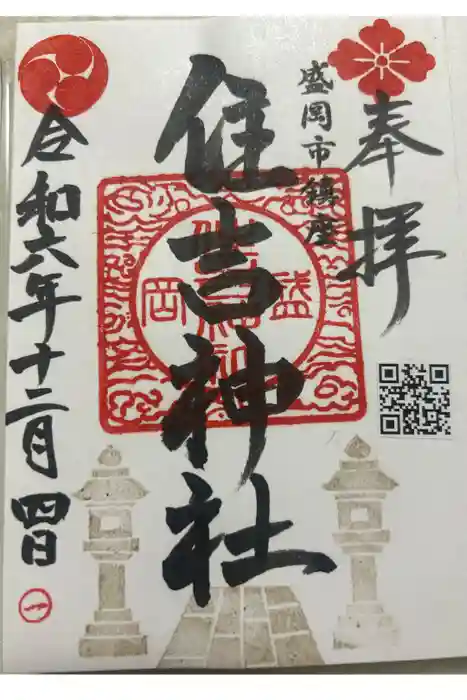 奉拝
盛岡市鎮座
住吉神社
盛
岡
令和六年十二月四日
一